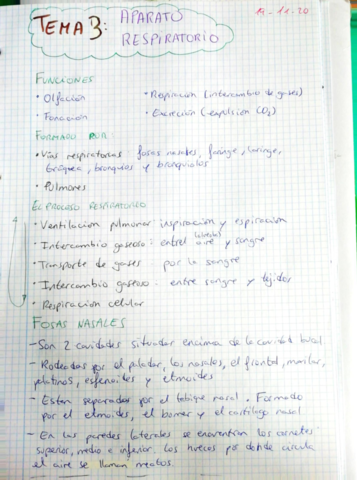 TEMA 3: APARATO
RESPIRATORIO
19-11-20
FUNCIONES
· Olfacción · Respiración (intercambio de gases)
· Fonación · Excreción (expulsión CO2)
FORMADO POR:
· Vías respiratorias fosas nasales, faringe, laringe,
tráquea, bronquios y bronquiolos
· Pulmones
EL PROCESO RESPIRATORIO
· Ventilación pulmonar inspiración y espiración
· Intercambio gaseoso: entre aire y sangre
· Transporte de gases por la sangre
· Intercambio gaseoso: entre sangre y tejidos
· Respiración celular
FOSAS NASALES
- Son 2 cavidades situadas encima de la cavidad bucal
- Rodeadas por el paladar, los nasales, el frontal, maxilar,
palatinos, esfenoides y etmoides
- Estan separadas por el tabique nasal. Formado
por el etmoides, el bomer y el cartílago nasal
- En las paredes laterales se encuentran los cornetes
superior, medio e inferior. Los huecos por donde circula
el aire se llaman meatos.